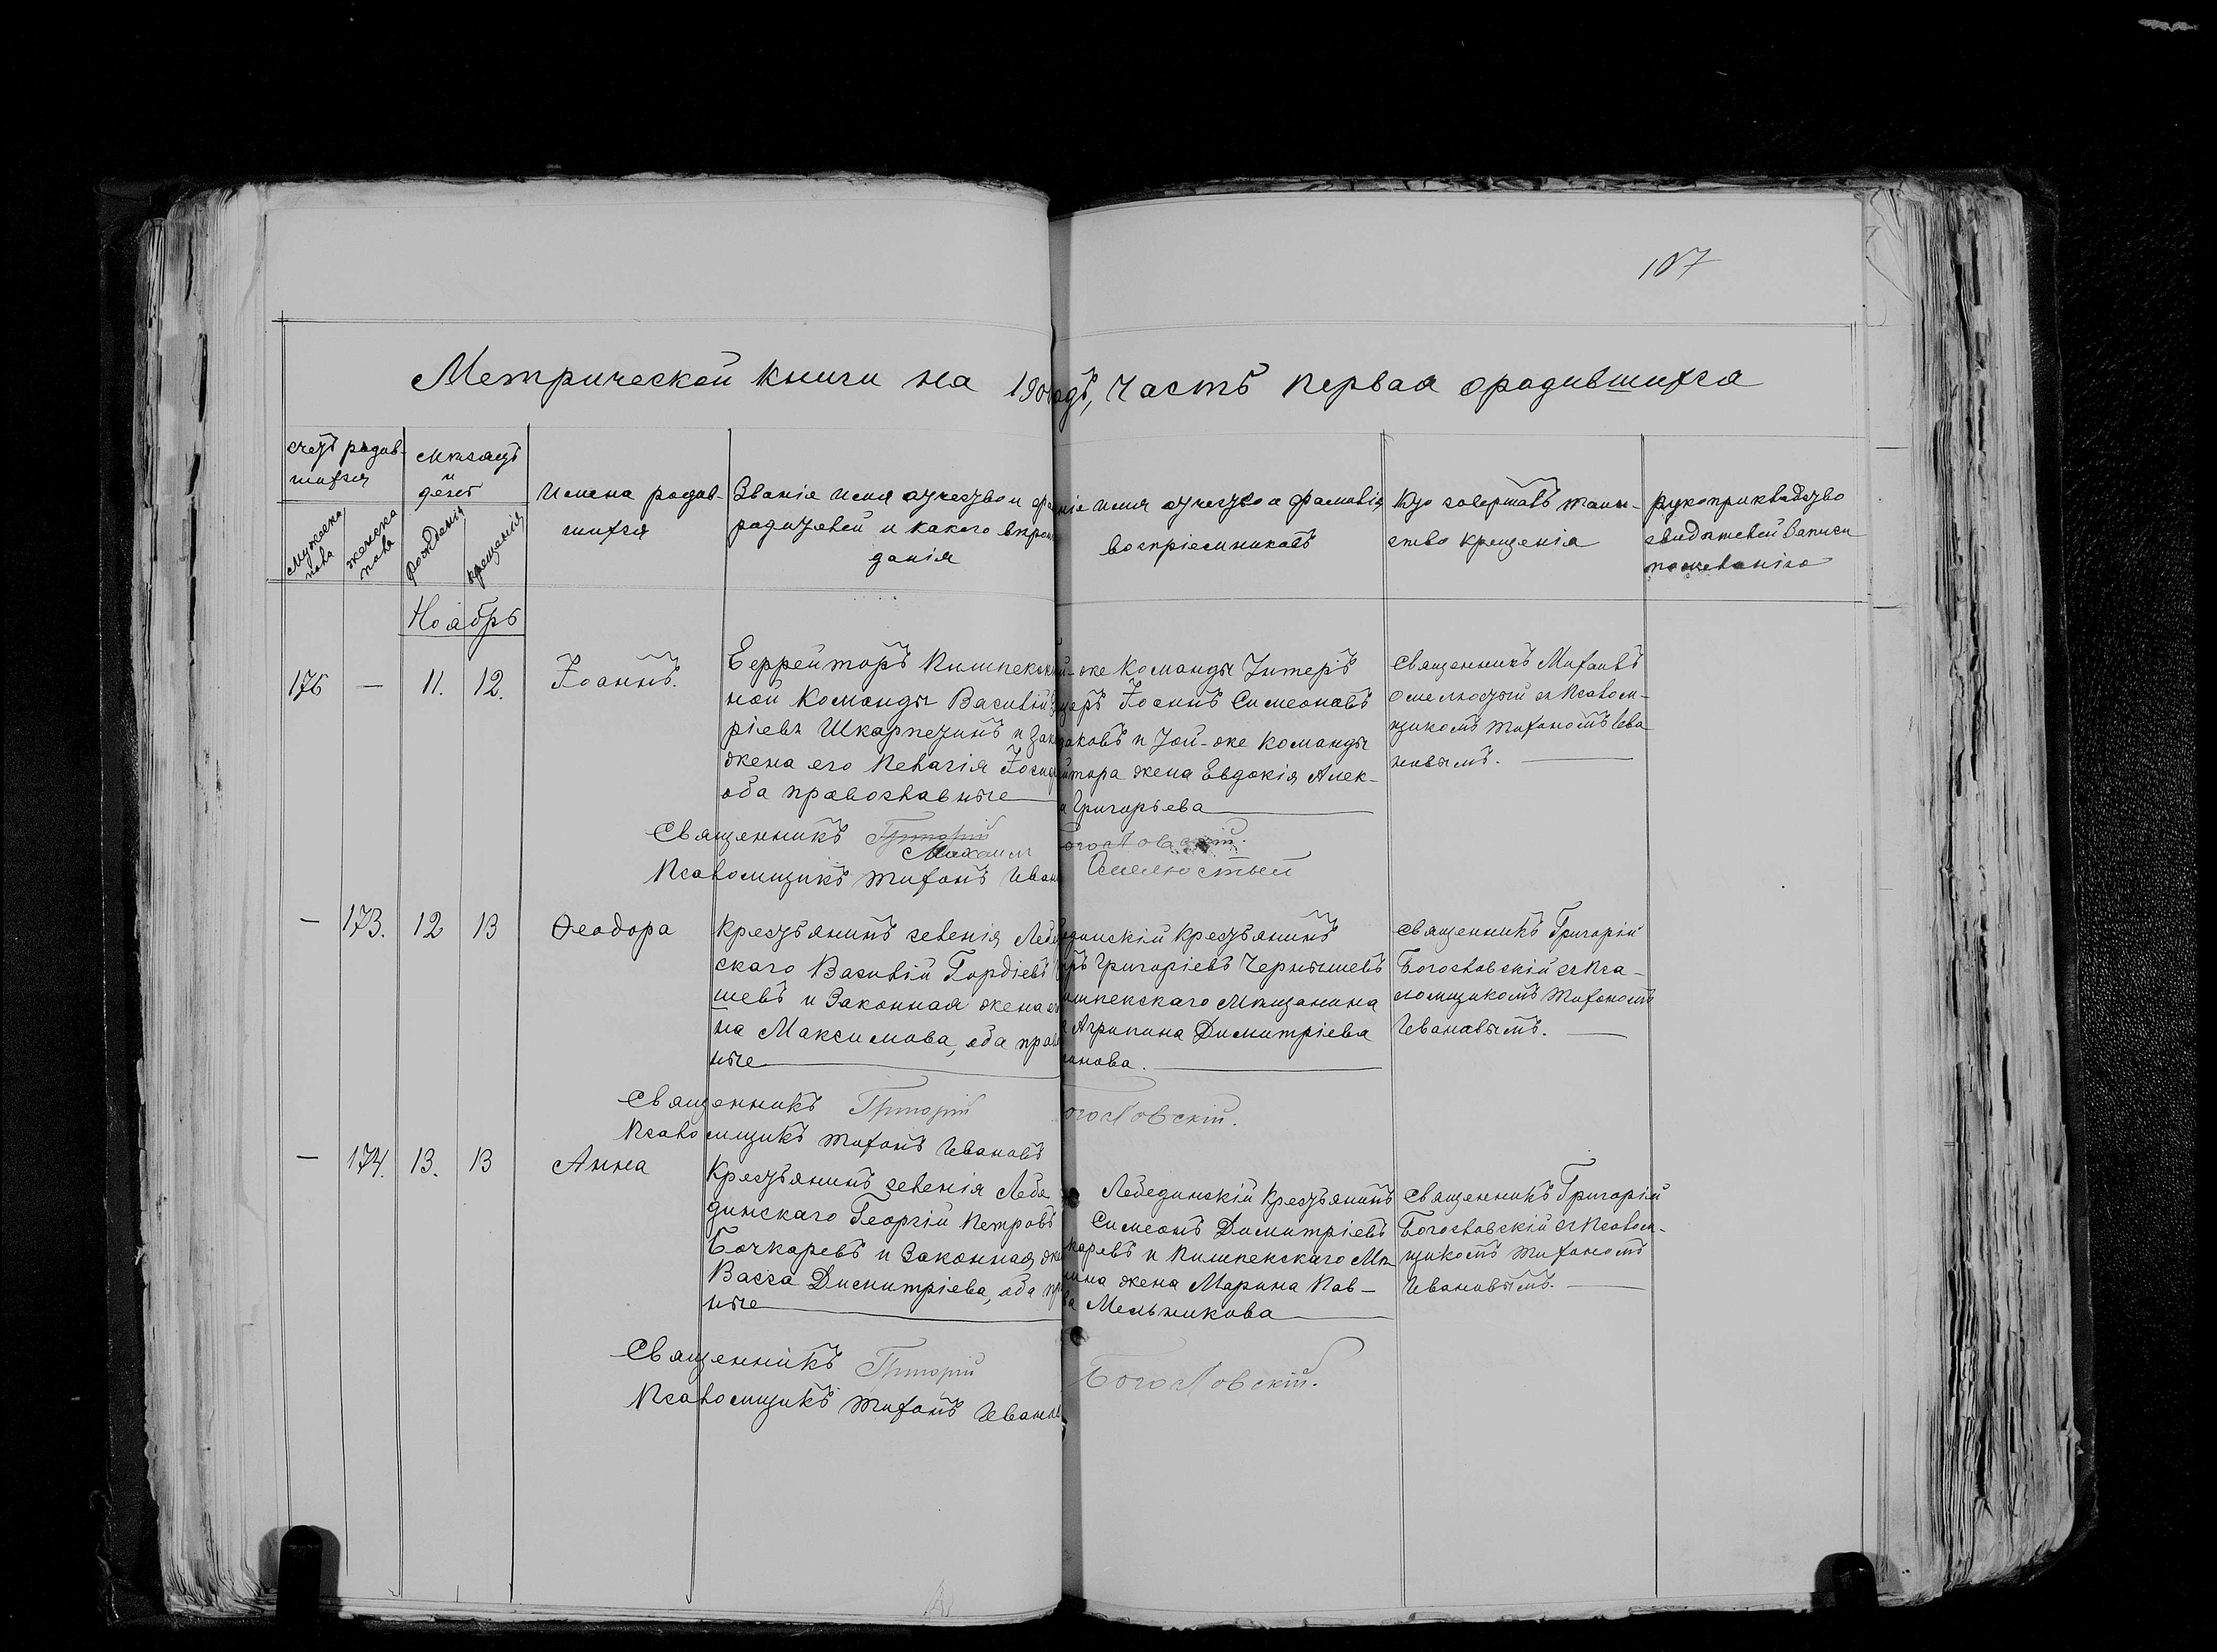 107
Метрической книги на 190 годъ, Часть первая о родившихся
счетъ родив-
шихся
мужеска
пола
женска
пола
Мѣсяцъ
и
день
рожденія
крещенія
Имена родив-
шихся
Званіе имя отчество и
родителей и какого вѣроис
данія
имя отчество и фамилія
воспріемниковъ
Кто совершалъ таин-
ство крещенія
Рукоприкладство
свидѣтелей записи
по желанію
Ноябрь
176 — 11. 12. Іоаннъ.
Ефрейторъ Пишпекск
ной Команды Василій
ріевъ Шкарпетинъ и Зак
жена его Пелагія
оба православные
й-же Команды Унтеръ
церъ Іоаннъ Симеоновъ
и той-же Команды
йтора жена Евдокія Алек-
Григорьева
Священникъ Михаилъ
Омелюстый съ Псалом-
щикомъ Тихономъ Ива
новымъ.
Священникъ Григорій Богословскій.
Михаил Омелюстый
Псаломщикъ Тихонъ Иван
— 173. 12 13 Ѳеодора
Крестьянинъ селенія Лебе
скаго Василій Гордіевъ
шевъ и Законная жена е
на Максимова, оба прав
ные
динскій Крестьянинъ
ръ Григоріевъ Чернышевъ
ишпекскаго Мѣщанина
Агрипина Димитріева
анова.
Священникъ Григорій
Богословскій съ Пса-
ломщикомъ Тихономъ
Ивановымъ.
Священникъ Григорій Богословскій.
Псаломщикъ Тихонъ Ивановъ
— 174. 13. 13 Анна
Крестьянинъ селенія Лебе
динскаго Георгій Петровъ
Бочкаревъ и Законная же
Васса Димитріева, оба пр
ные
Лебединскій Крестьянинъ
Симеонъ Димитріевъ
каревъ и Пишпекскаго Мѣ
нина жена Марина Пав-
ва Мельникова
Священникъ Григорій
Богословскій съ Псалом-
щикомъ Тихономъ
Ивановымъ.
Священникъ Григорій Богословскій.
Псаломщикъ Тихонъ Иванов